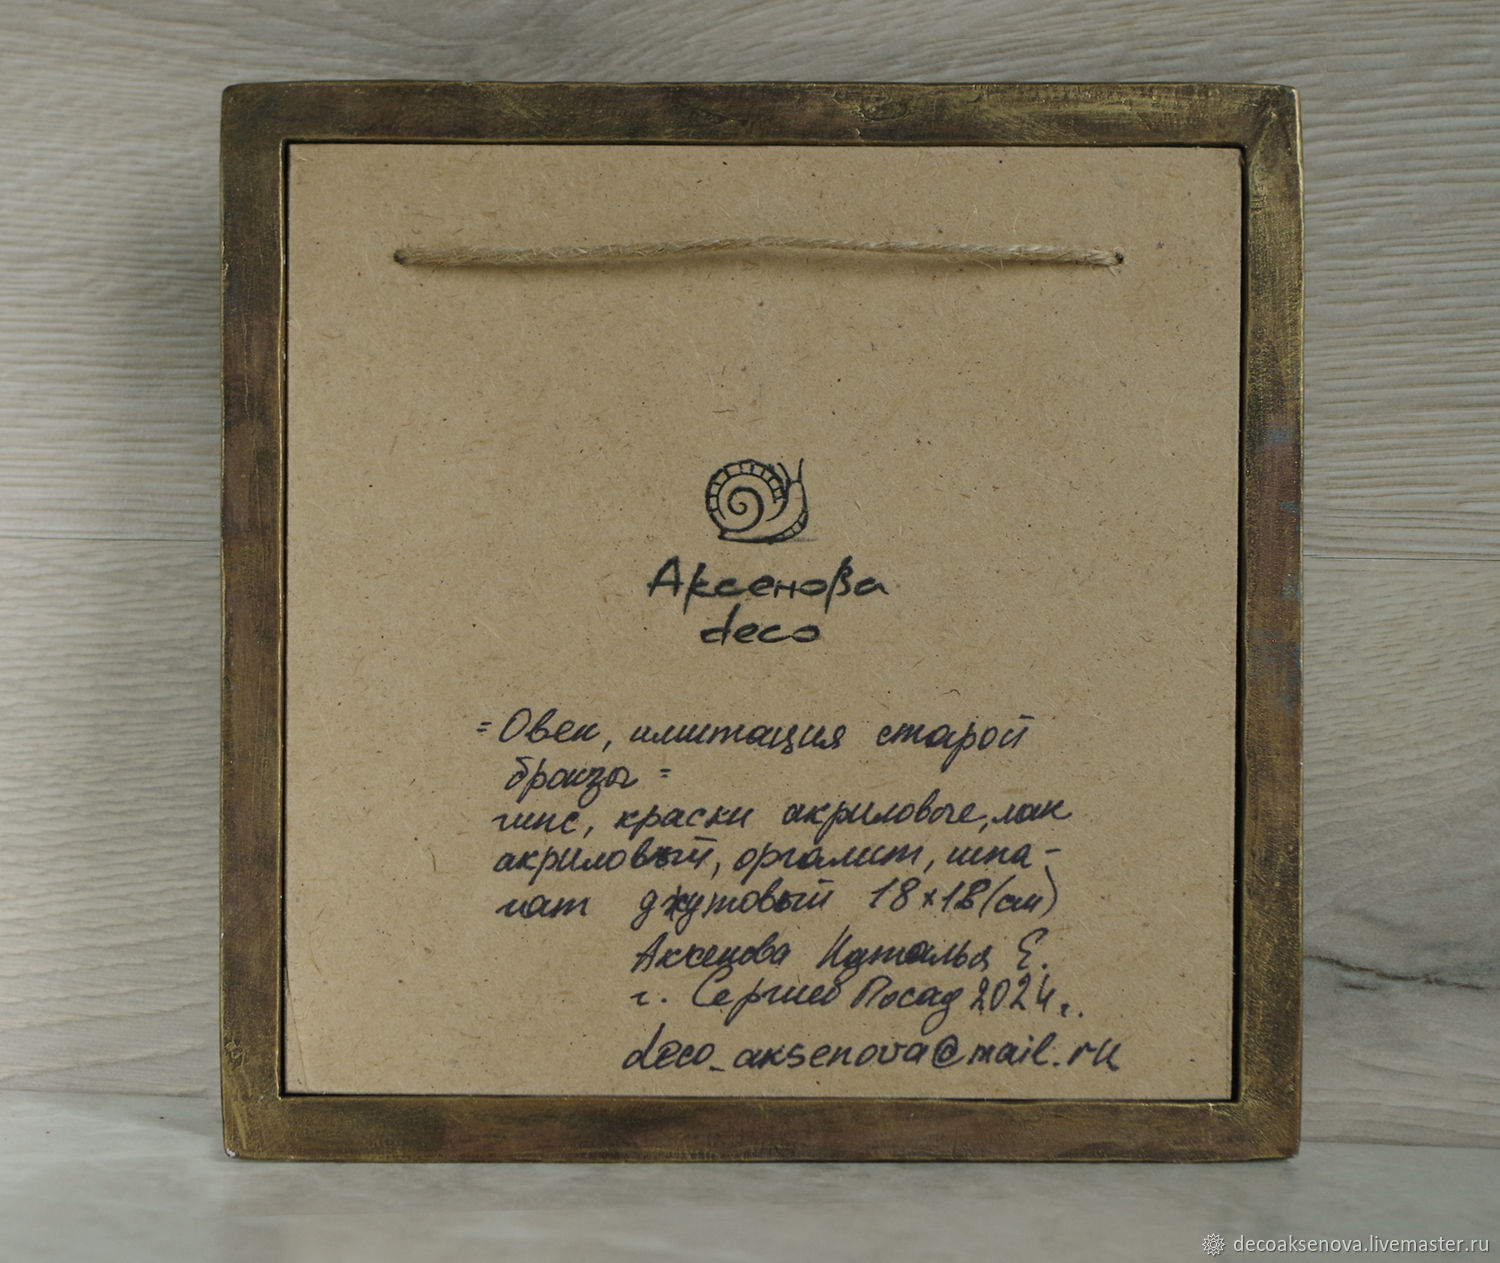 Аксенова
deco
= Овен, имитация старой
бронзы =
гипс, краски акриловые, лак
акриловый, оргалит, шпа-
гат джутовый 18×18 (см)
Аксенова Наталья Е.
г. Сергиев Посад 2024 г.
deco_aksenova@mail.ru
decoaksenova.livemaster.ru